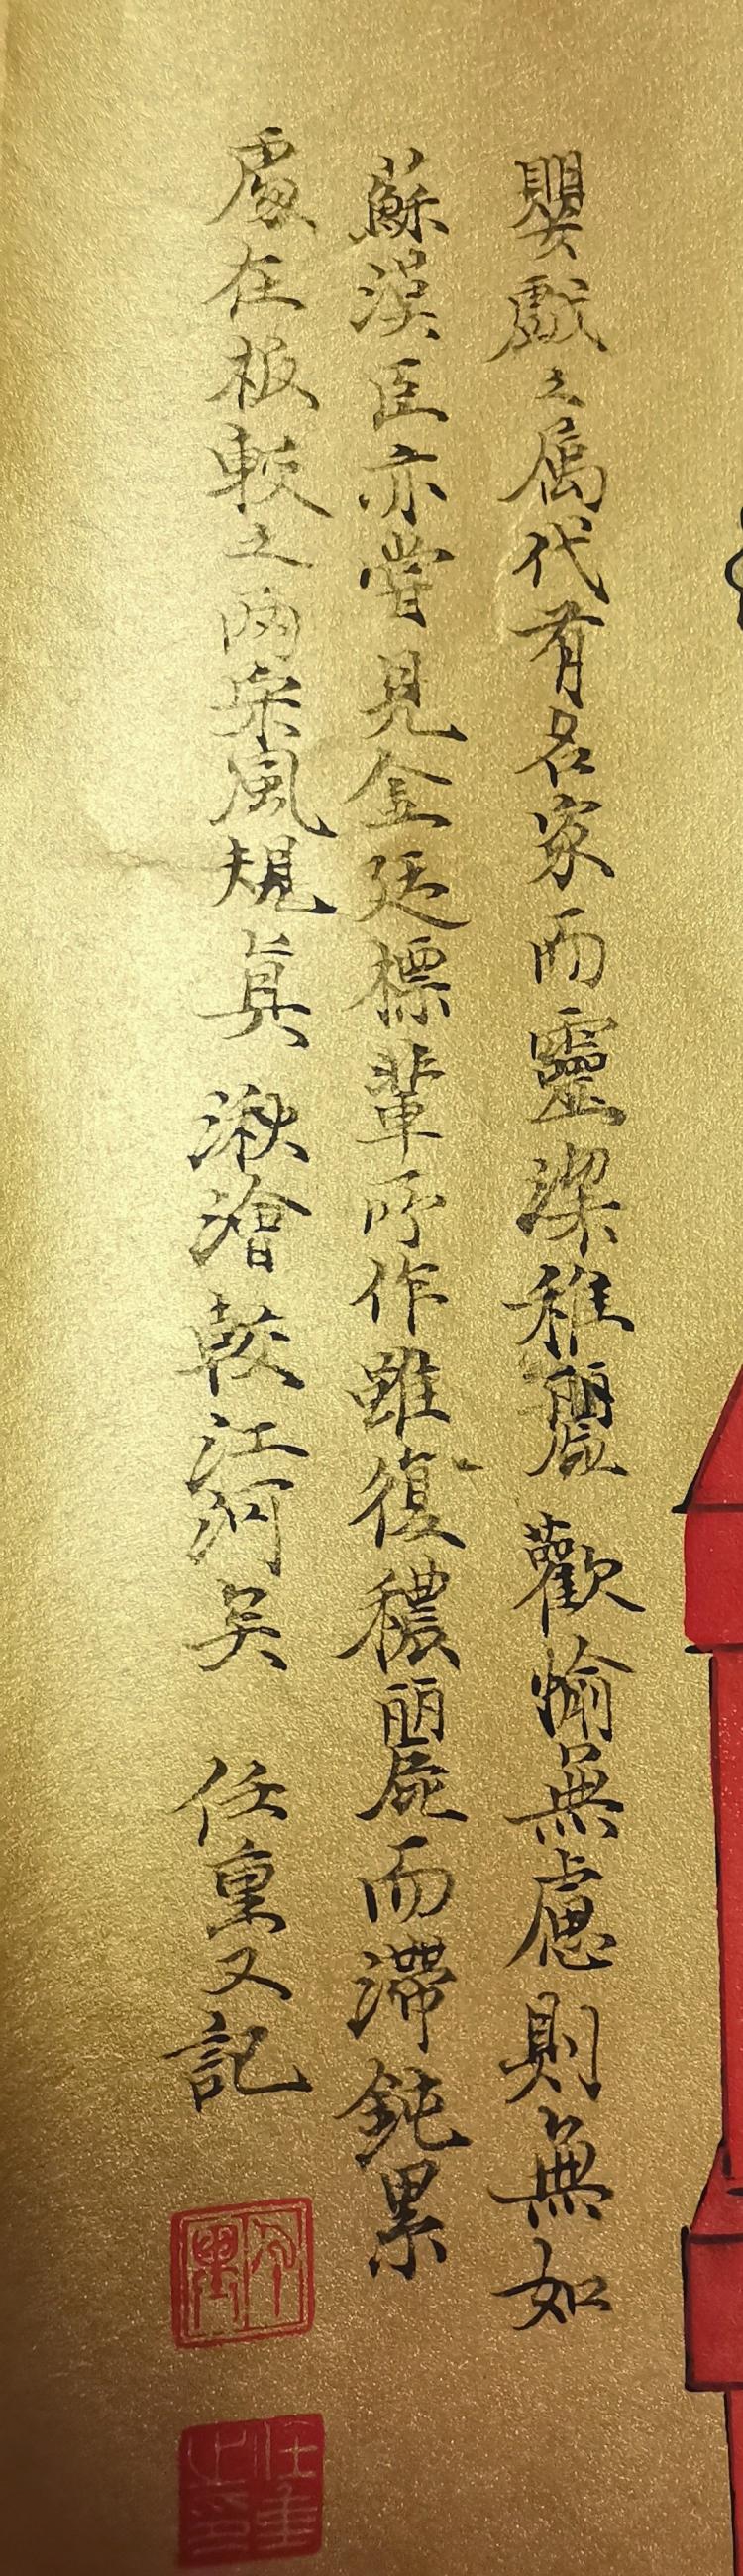 嬰戲之屬代有名家而靈潔稚麗歡愉無慮則無如
蘇漢臣亦嘗見金廷標輩所作雖復穠麗而滯鈍累
處在板較之兩宋風規真湫澮較江河矣
任重又記
任重
任重之印